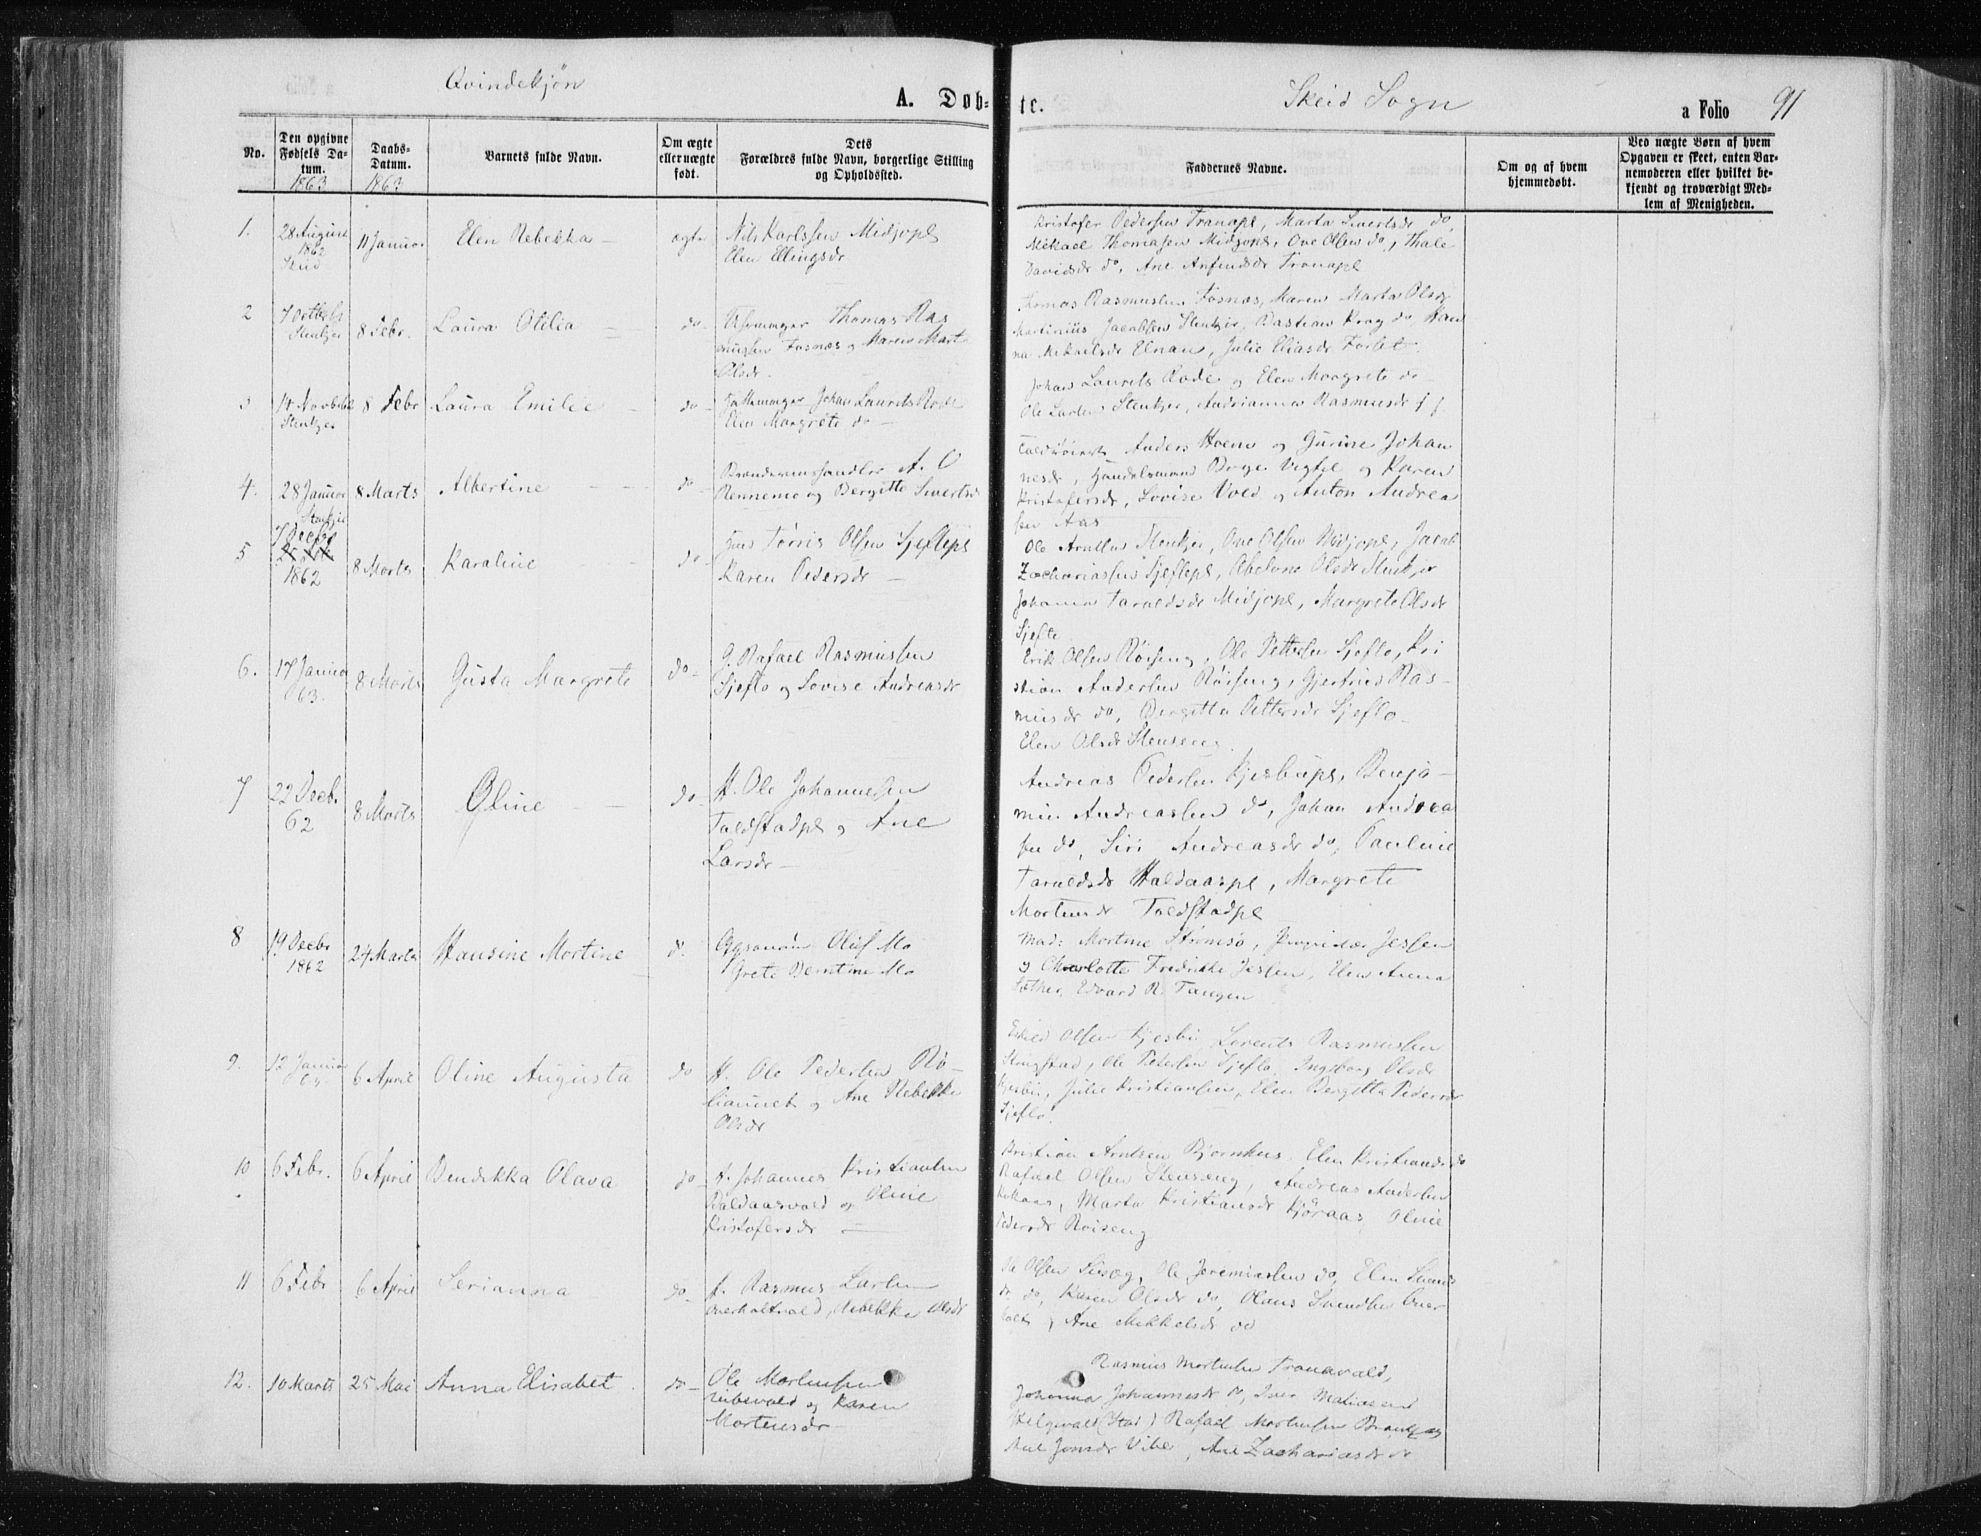 Qvindekjøn
A. Døb-
te.
Skeid Sogn
a Folio 91
No.
Den opgivne Fødsels Da-tum. 1863
Daabs-Datum. 1863
Barnets fulde Navn.
Om ægte eller uægte født.
Dets Forældres fulde Navn, borgerlige Stilling og Opholdssted.
Faddernes Navne.
Om og af hvem hjemmedøbt.
Ved uægte Børn af hvem Opgaven er skeet, enten Bar-nemoderen eller hvilket be-kjendt og troværdigt Med-lem af Menigheden.
1. 28 August 1862 11 Januar Elen Rebekka ægte
Nils Karlssen Midjopl
Elen Ellingsdr
Kristofer Pedersen Tranapl, Marta Sivertsdr do,
Mikael Thomasen Midjopl, Ove Olsen do, Thale
Davidsdr do, Ane Anfindsdr Tranapl
2 8 Febr. Laura Otilia do
Thomas Ras
mussen Fosnæs og Maren Marta
Olsdr.
Thomas Rasmussen Fosnæs, Maren Marta Olsdr
Martinius Jacobsen Stenkjer, Bastian Krag do, Han
na Mikaelsdr Elnan, Julie Eliasdr Forbet
3 8 Febr Laura Emilie do
Johan Laurits Rode
Elen Margrete do
Johan Laurits Rode og Elen Margrete do
Ole Larsen Stenkjer, Andrianna Rasmusdr
4. 28 Januar Stenkjer 8 Marts Albertine do
A. O
Rennemo og Bergitte Sivertsdr
Anders Hoem og Gurine Johan
nesdr, Handelsmand Vigtil og Karen
Kristofersdr, Lovise Voed og Anton Andrea
sen Aas
5 7 Decbr 1862 8 Marts Karoline do
Hmd Tørris Olsen Sjeflopl
Karen Pedersdr
Ole Arntsen Stenkjer, Ove Olsen Midjopl, Jacob
Zachariassen Sjeflopl, Abelone Olsdr Stenkjer
Johanna Taraldsdr Midjopl, Margrete Olsdr
Sjeflo
6. 17 Januar 63. 8 Marts Gusta Margrete do
G. Rafael Rasmussen
Sjeflo og Lovise Andreasdr
Erik Olsen Røiseng, Ole Pettersen Sjeflo, Kri
stian Andersen Røiseng, Gjertrud Ras-
musdr do, Bergitta Pettersdr Sjeflo
Elen Olsdr Stenseng
7 22 Decbr. 62 8 Marts Oline do
H. Ole Johannesen
Foldstadpl og Ane
Larsdr
Andreas Pedersen Kjesbupl, Benja-
min Andreasen do, Johan Andrea
sen do, Siri Andreasdr do, Pauline
Taraldsdr Haldaaspl, Margrete
Mortensdr Foldstadpl
8 19 Decbr 1862 24 Marts Hansine Mortine do.
Oluf Mo
Grete Berntine Mo
Mad: Mortine Strømsø, Jessen
og Charlotte Fredrikke Jessen, Elen Anna
Sæther, Edvard R. Tangen
9. 12 Januar 6 April Oline Augusta do
H. Ole Pedersen Rø-
og Ane Rebekka
Olsdr
Olsen Kjesbu, Lorents Rasmussen
Ole Petersen Sjeflo, Ingeborg Olsdr
Kjesbu, Julie Kristiansen, Elen Bergitta Pedersdr
Sjeflo.
10 6 Febr. 6 April Bendikka Olava do
H. Johannes Kristiansen
Haldaasvald og Oline
Kristofersdr
Kristian Arntsen Bjørnhus, Elen Kristiansdr do
Rafael Olsen Stenseng, Andreas Andersen
Marta Kristiansdr Kjøraas, Oline
Pedersdr Røiseng
11 6 Febr 6 April Serianna do
H. Rasmus Larsen
Overholtvald, Rebekka Olsdr
Ole Olsen Ole Jeremiassen do, Elen
dr do, Karen Olsdr do, Olaus Svendsen Over
holt og Ane Mikkelsdr do
12. 10 Marts 25 Mai Anna Elisabet do
Ole Mortensen
Vibevald og Karen
Mortensdr
Rasmus Mortensen Tranavald,
Johanna Johannesdr do, Iver Matiasen
Helgevald (Stod) Rafael Mortensen
Ane Jonsdr Vibe, Ane Zachariasdr do